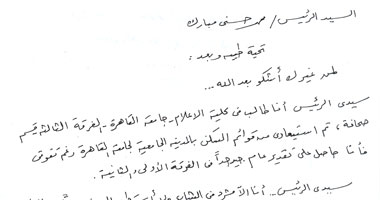 السيد الرئيس / محمد حسنى مبارك
تحية طيبة وبعد :
لمن غيرك أشكو بعد الله ...
سيدى الرئيس أنا طالب فى كلية الاعلام - جامعة القاهرة - الفرقة الثالثة قسم
صحافة ، تم استبعادى من قوائم السكن بالمدينة الجامعية لجامعة القاهرة رغم تفوقى
فأنا حاصل على تقدير عام جيد جداً فى الفرقة الأولى والثانية .
سيدى الرئيس .. أنا لا